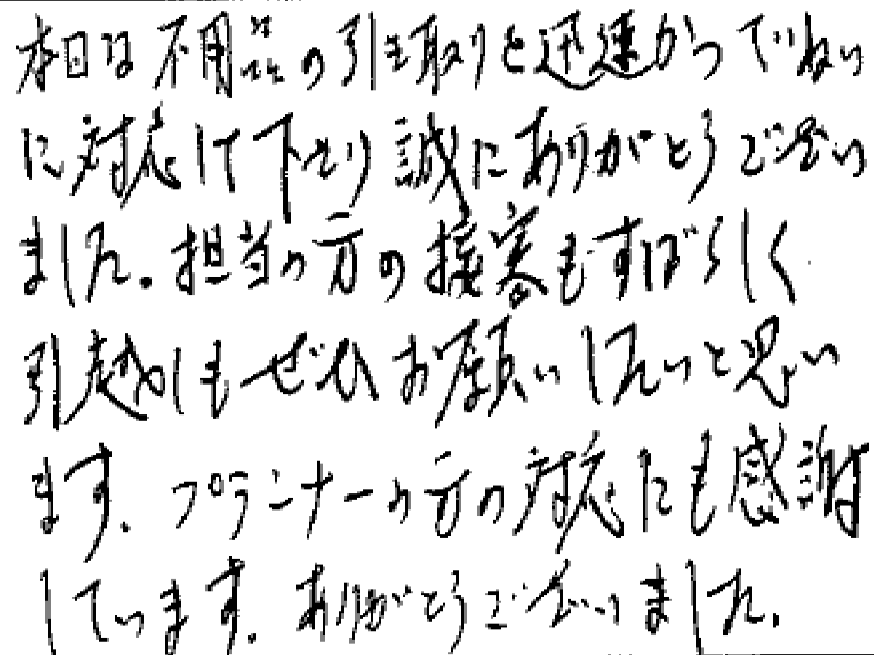 本日は不用品の引き取りを迅速かつていねい
に対応して下さり誠にありがとうござい
ました。担当の方の接客もすばらしく
引越しもぜひお願いしたいと思い
ます。プランナーの方の対応にも感謝
しています。ありがとうございました。